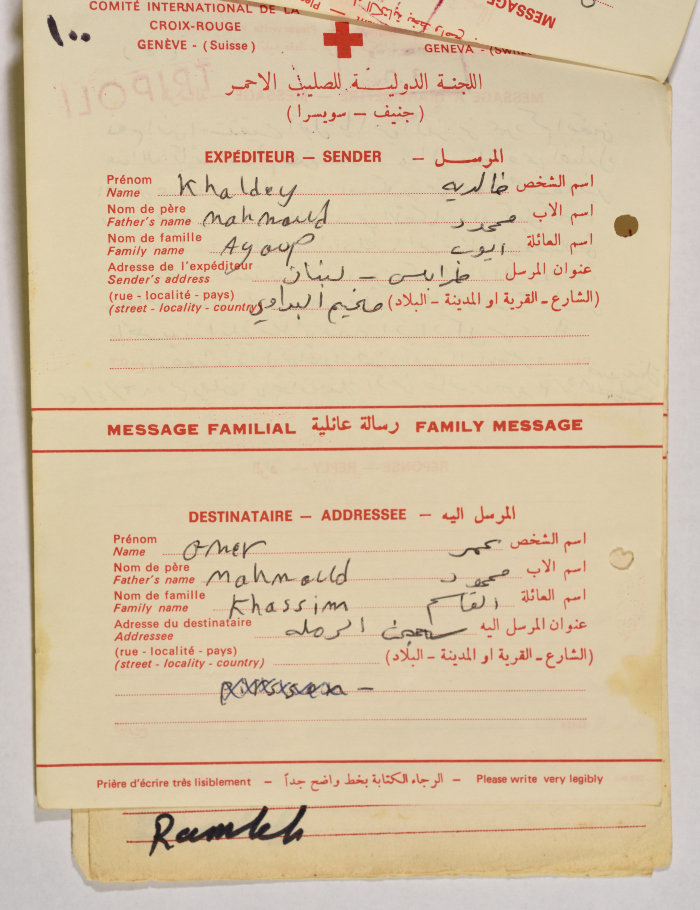 ١٠٠
COMITÉ INTERNATIONAL DE LA
CROIX-ROUGE
GENÈVE - (Suisse)
MESSAGE
GENEVA -
TRIPOLI
اللجنة الدولية للصليب الاحمر
(جنيف - سويسرا)
EXPÉDITEUR — SENDER — المرسل
Prénom
Name Khaldey خالديه اسم الشخص
Nom de père
Father's name mahmould محمود اسم الاب
Nom de famille
Family name Ayoup ايوب اسم العائلة
Adresse de l'expéditeur
Sender's address طرابلس - لبنان عنوان المرسل
(rue - localité - pays)
(street - locality - country) مخيم البداوي (الشارع - القرية او المدينة - البلاد)
MESSAGE FAMILIAL رسالة عائلية FAMILY MESSAGE
DESTINATAIRE — ADDRESSEE — المرسل اليه
Prénom
Name Omer عمر اسم الشخص
Nom de père
Father's name Mahmould محمود اسم الاب
Nom de famille
Family name Khassim القاسم اسم العائلة
Adresse du destinataire
Addressee سجن الرمله عنوان المرسل اليه
(rue - localité - pays)
(street - locality - country) (الشارع - القرية او المدينة - البلاد)
Prière d'écrire très lisiblement — الرجاء الكتابة بخط واضح جداً — Please write very legibly
Ramleh